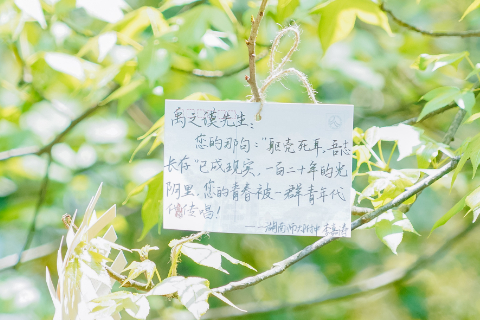 禹之谟先生：
您的那句："躯壳死耳，吾志
长存"已成现实，一百二十年的光
阴里，您的青春被一群青年代
代传唱！
——湖南师大附中 李